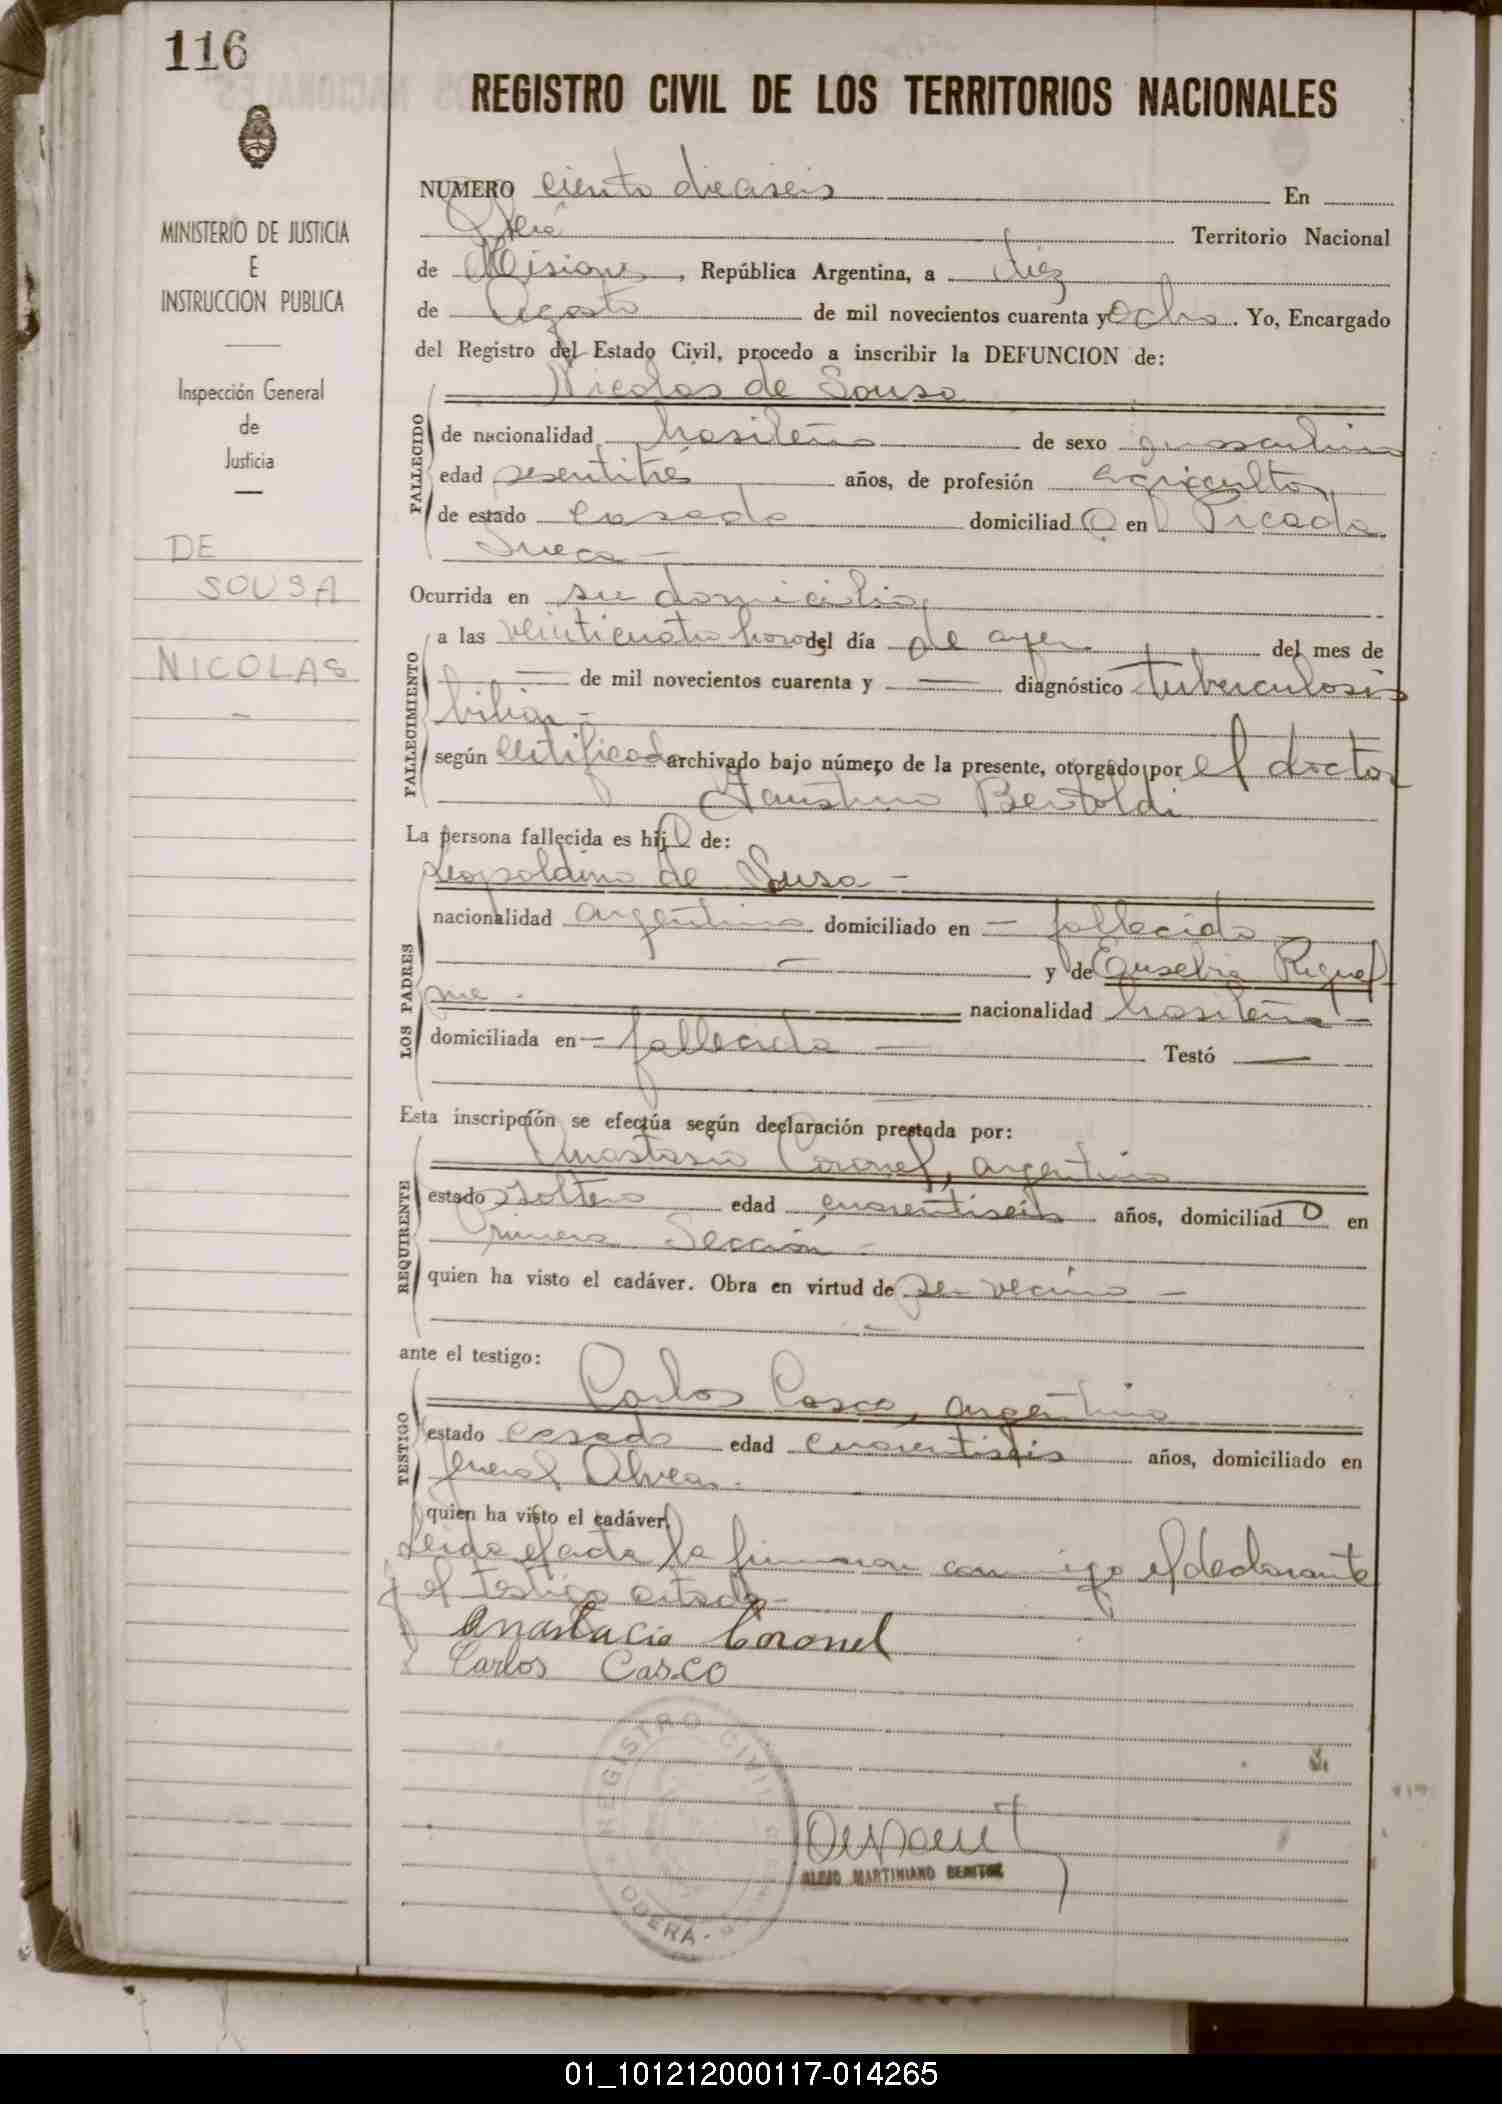 116
REGISTRO CIVIL DE LOS TERRITORIOS NACIONALES
MINISTERIO DE JUSTICIA
E
INSTRUCCION PUBLICA
Inspección General
de
Justicia
DE
SOUSA
NICOLAS
NUMERO ciento dieciseis En
Oberá Territorio Nacional
de Misiones, República Argentina, a diez
de Agosto de mil novecientos cuarenta y ocho. Yo, Encargado
del Registro del Estado Civil, procedo a inscribir la DEFUNCION de:
Nicolas de Sousa
FALLECIDO
de nacionalidad brasileño de sexo masculino
edad sesentitrés años, de profesión agricultor,
de estado casado domiciliado en Picada
Sueca -
Ocurrida en su domicilio,
FALLECIMIENTO
a las veinticuatro horas del día de ayer del mes de
— de mil novecientos cuarenta y — diagnóstico tuberculosis
biliar -
según certificado archivado bajo número de la presente, otorgado por el doctor
Faustino Bertoldi
La persona fallecida es hijo de:
LOS PADRES
Leopoldino de Susa -
nacionalidad argentino domiciliado en - fallecido -
— y de Eusebia Riquel
me - nacionalidad brasileña -
domiciliada en - fallecida — Testó —
Esta inscripción se efectúa según declaración prestada por:
REQUIRENTE
Anastasio Coronel, argentino
estado soltero edad cuarentiseis años, domiciliado en
Primera Sección -
quien ha visto el cadáver. Obra en virtud de ser vecino -
ante el testigo:
TESTIGO
Carlos Casco, argentino
estado casado edad cuarentiseis años, domiciliado en
General Alvear.
quien ha visto el cadáver.
Leida el acta la firmaron conmigo el declarante
y el testigo citado -
Anastacio Coronel
Carlos Casco
REGISTRO CIVIL
OBERA
ALEJO MARTINIANO BENITEZ
01_101212000117-014265